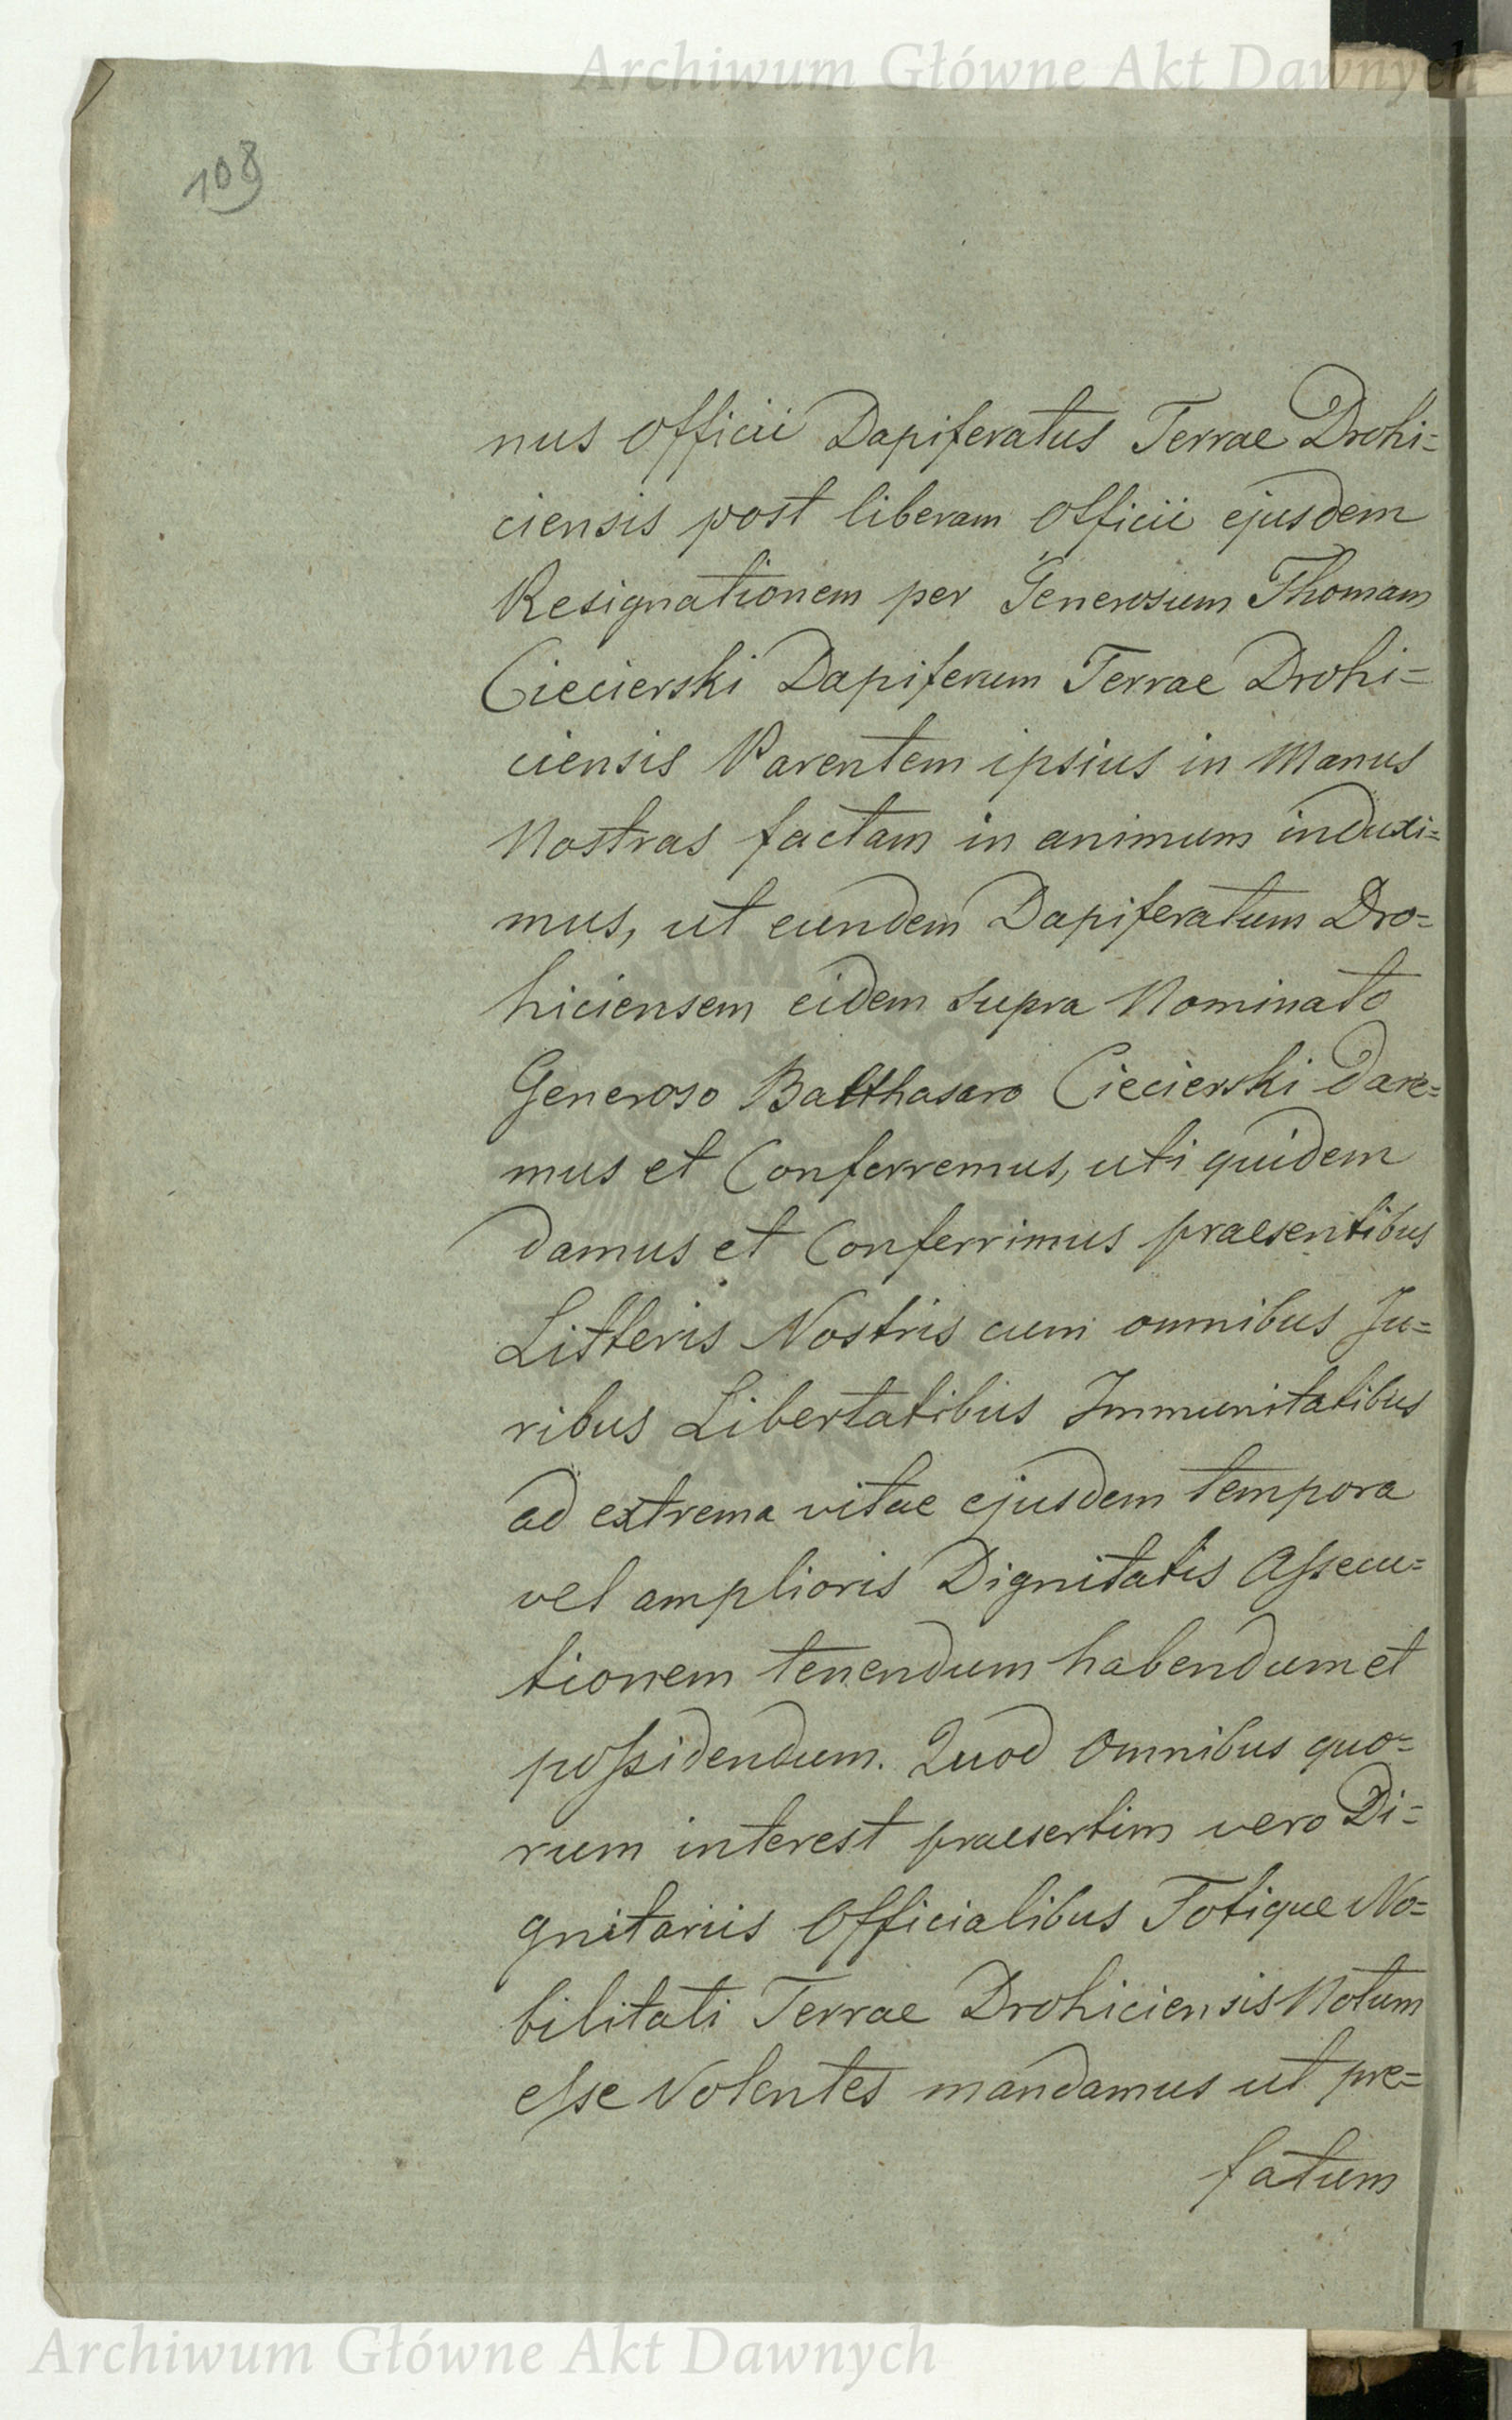 Archiwum Główne Akt Dawnych
108
nus Officii Dapiferatus Terrae Drohi=
ciensis post liberam Officii ejusdem
Resignationem per Generosum Thomam
Ciecierski Dapiferum Terrae Drohi=
ciensis Parentem ipsius in Manus
Nostras factam in animum induxi=
mus, ut eundem Dapiferatum Dro=
hiciensem eidem supra Nominato
Generoso Balthasaro Ciecierski dare=
mus et Conferremus, uti quidem
damus et Conferrimus praesentibus
Litteris Nostris cum omnibus Ju=
ribus Libertatibus Immunitatibus
ad extrema vitae ejusdem tempora
vel amplioris Dignitatis Assecu=
tionem tenendum habendum et
possidendum. Quod Omnibus quo=
rum interest praesertim vero Di=
gnitariis Officialibus Totique No=
bilitati Terrae Drohiciensis Notum
esse Volentes mandamus ut pre=
fatum
Archiwum Główne Akt Dawnych